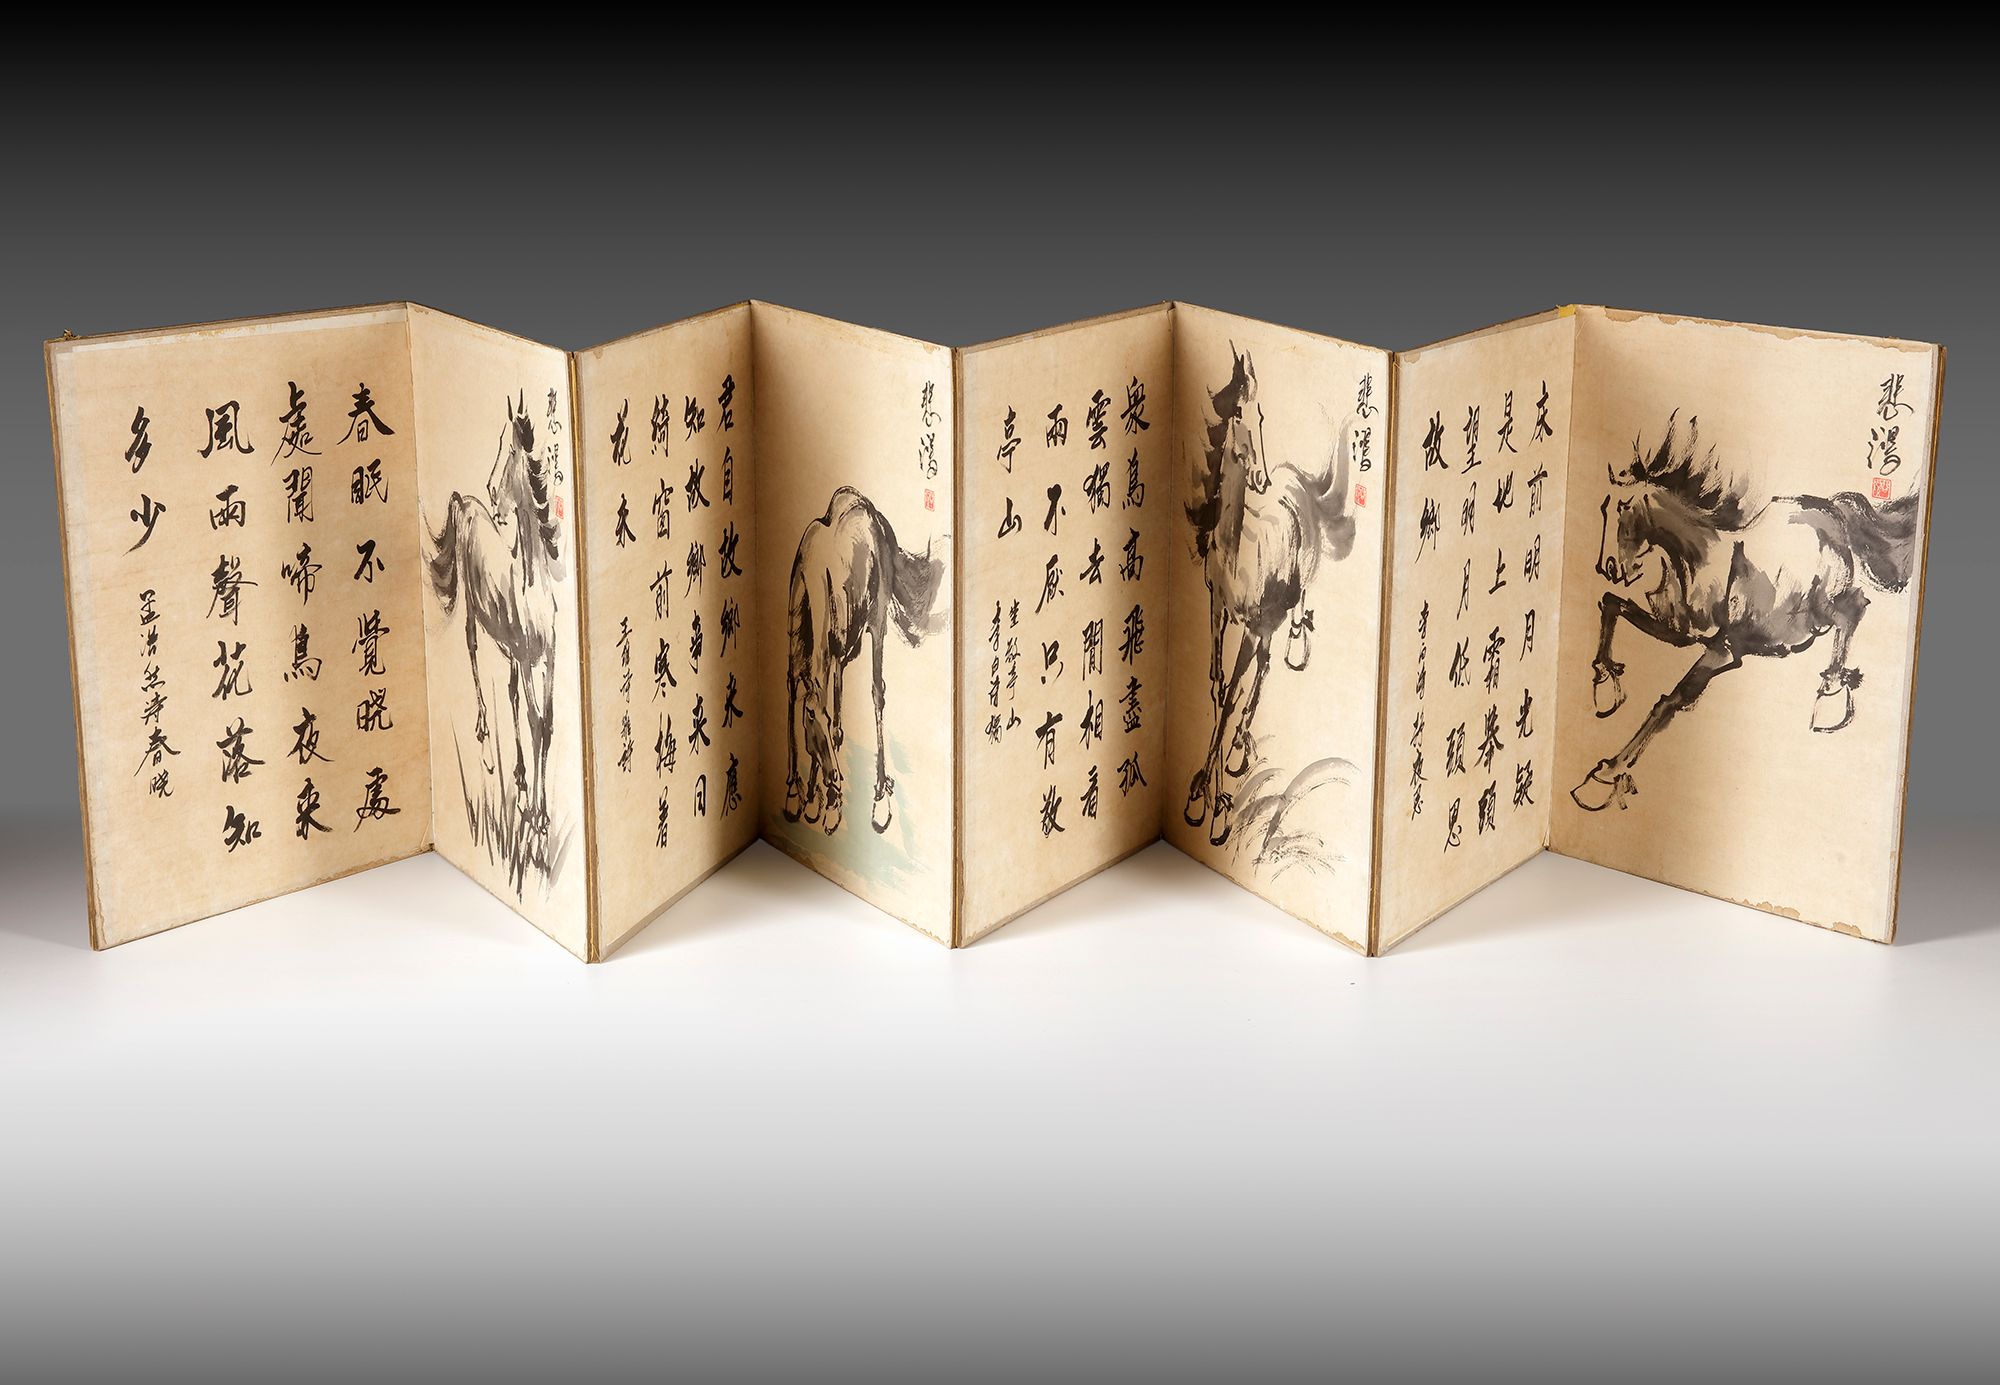 悲鴻
床前明月光疑
是地上霜舉頭
望明月低頭思
故鄉
李白詩静夜思
悲鴻
衆鳥高飛盡孤
雲獨去閒相看
兩不厭只有敬
亭山
李白詩獨
坐敬亭山
悲鴻
君自故鄉來應
知故鄉事來日
綺窗前寒梅着
花未
王維詩雜詩
悲鴻
春眠不覺晓處
處聞啼鳥夜來
風雨聲花落知
多少
孟浩然詩春晓